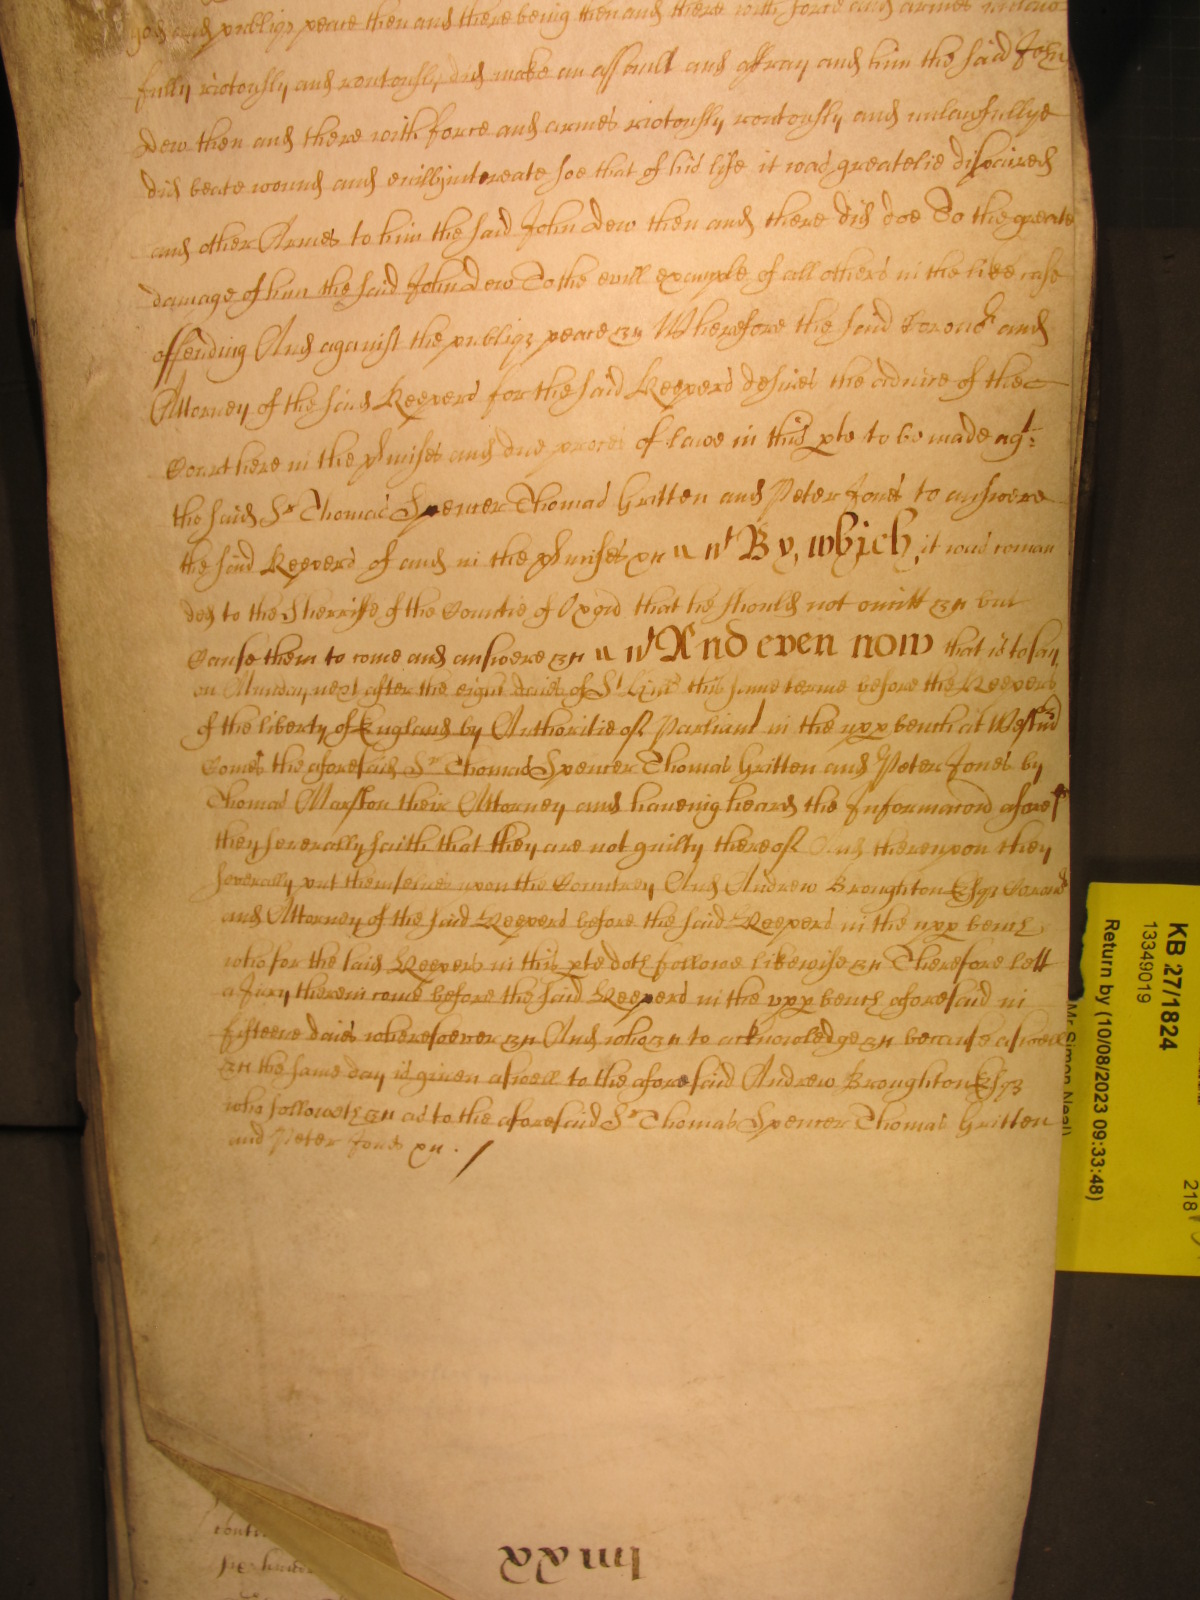 and publiqs peace then and there being then and there with force and armes unlaw
fully riotously and routously did make an assault and affray and him the said John
Dew then and there with force and armes riotously routously and unlawfullye
did beate wound and evilly intreate soe that of his life it was greatelie dispaired
and other Armes to him the said John Dew then and there did doe To the greate
damage of him the said John Dew To the evill example of all others in the like case
offending And against the publiqs peace &c Wherefore the said Coronr and
Attorney of the said Keepers for the said Keepers desires the advice of the
Court here in the pmises and due proces of lawe in this pte to be made agt:
the said Sr Thomas Spencer Thomas Gritten and Peter Jones to answere
the said Keepers of and in the pmises &c By, which, it was coman
ded to the Sherriffe of the Countie of Oxord that he should not omitt &c but
Cause them to come and answere &c And even now that is to say
on Munday next after the eight daies of St this same terme before the Keepers
of the liberty of England by Authoritie of Parliamt in the upp bench at Westmd
Comes the aforesaid Sr Thomas Spencer Thomas Gritten and Peter Jones by
Thomas Marston their Attorney and haveing heard the Informacord afores
they severally saith that they are not guilty thereof And thereupon they
severally put themselves upon the Countrey And Andrew Broughton Esqr Coronr
and Attorney of the said Keepers before the said Keepers in the upp bench
who for the said Keepers in this pte doth followe likewise &c Therefore lett
a Jury therein come before the said Keepers in the upp bench aforesaid in
fifteene daies wheresoever &c And who &c to acknowledge &c because aswell
&c the same day is given aswell to the aforesaid Andrew Broughton Esqr
who followeth &c as to the aforesaid Sr Thomas Spencer Thomas Gritten
and Peter Jones &c.
KB 27/1824
13349019
Return by (10/08/2023 09:33:48)
Mr Simon Neal)
218